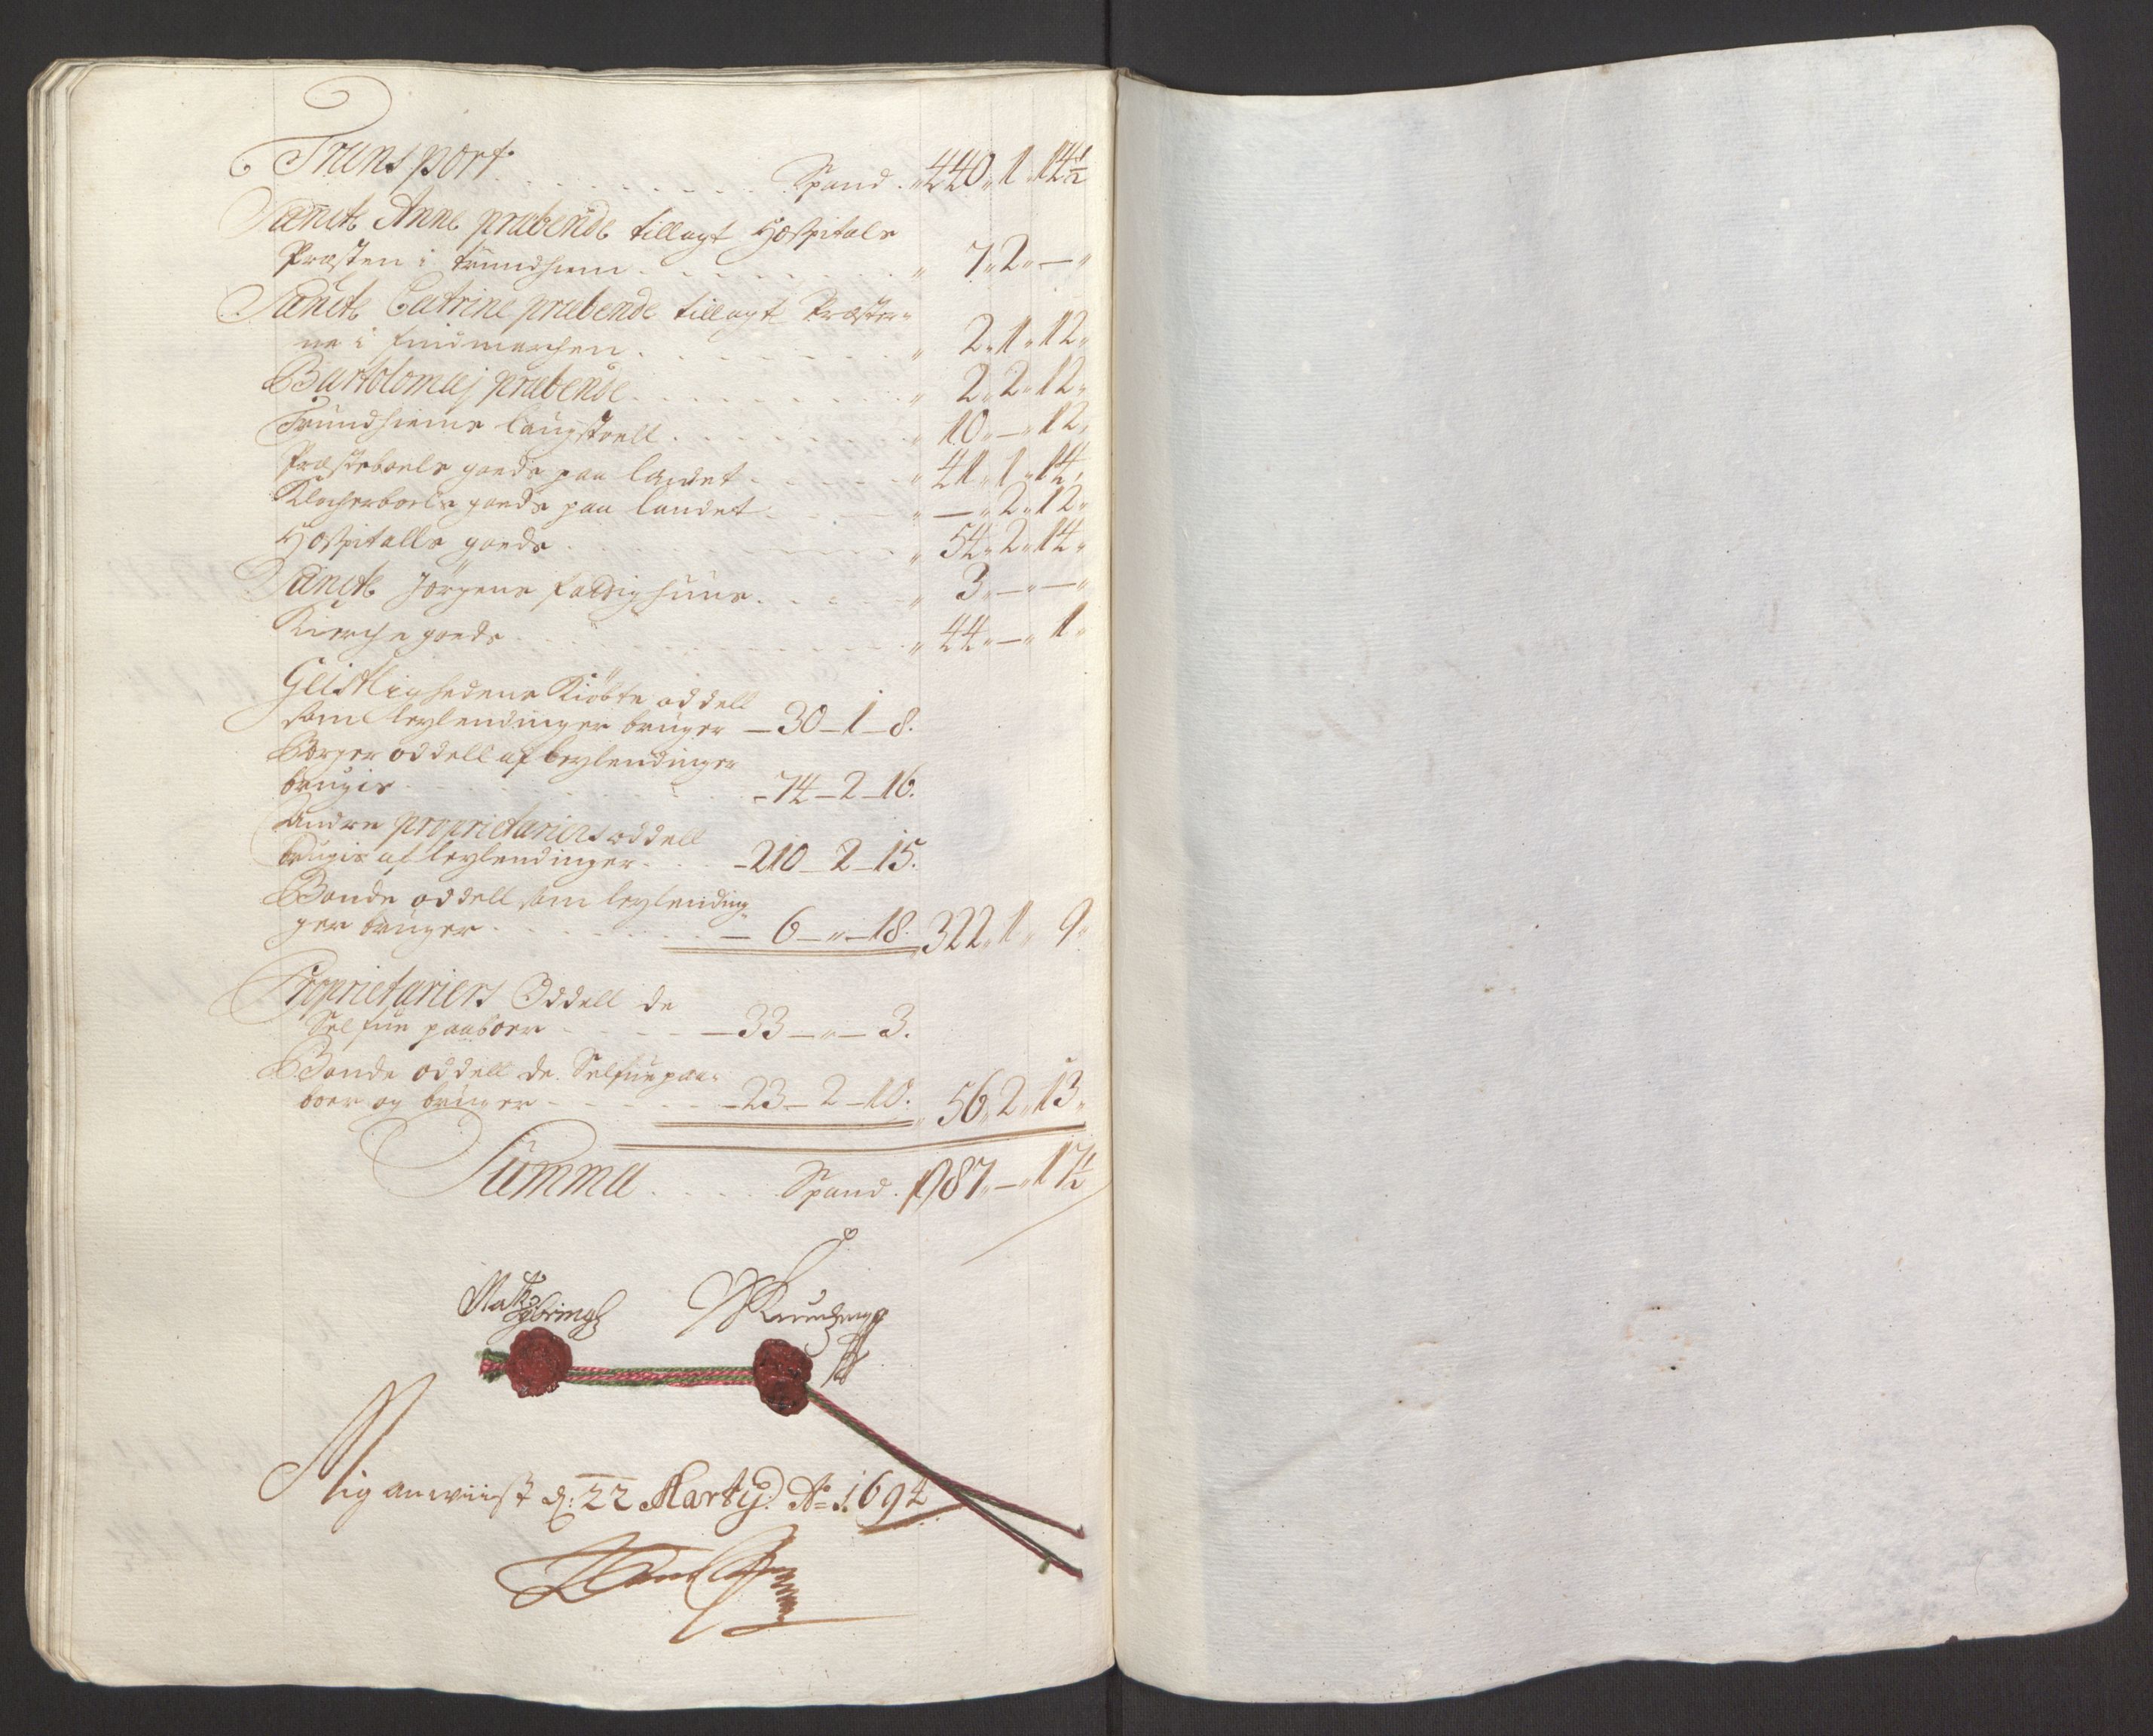 Transport . . . . . . . . . Spand . 440 „ 1 „ 14½
Sancte Anne præbende tillagt Hospitals
Præsten i trundhiem . . . . „ 7 „ 2 „ — „
Sancte Catrine præbende tillagt Præster-
ne i findmarchen . . . . „ 2 „ 1 „ 12 „
Bartolomæj præbende . . . . „ 2 „ 2 „ 12 „
Trundhiems laugstoell . . . . „ 10 „ — „ 12 „
Præsteboels goeds paa landet . . . „ 41 „ 1 „ 14 „
Klocherboels goeds paa landet . . . „ — „ 2 „ 12 „
Hospitalls goeds . . . . „ 54 „ 2 „ 14 „
Sancte Jørgens fattighuus . . . . „ 3 „ — „ — „
Kirche goeds . . . . „ 44 „ — „ 1 „
Geistlighedens Kiøbte oddell
som leylendinger bruger — 30 — 1 — 8.
Borger oddell af leylendinger
brugis . . . . — 74 — 2 — 16.
Andre proprietariers oddell
brugis af leylendinger . . — 210 — 2 — 15.
Bonde oddell som leylending
ger bruger . . . . — 6 — „ — 18. 322 „ 1 „ 9 „
Proprietariers Oddell de
Selfue paaboer . . . — 33 — „ — 3.
Bonde oddell de Selfue paa-
boer og bruger . . . — 23 — 2 — 10. „ 56 „ 2 „ 13 „
Summa . . . . Spand . 987 „ — „ 17½
Mig anwiist d: 22 Martij Ao 1694